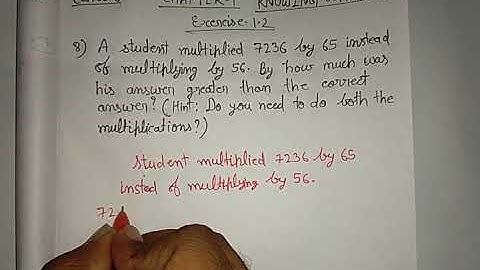 CHAPTER-1 KNOWING
Exercise-1.2
8) A student multiplied 7236 by 65 instead
of multiplying by 56. By how much was
his answer greater than the correct
answer? (Hint: Do you need to do both the
multiplications?)
student multiplied 7236 by 65
insted of multiplying by 56.
72